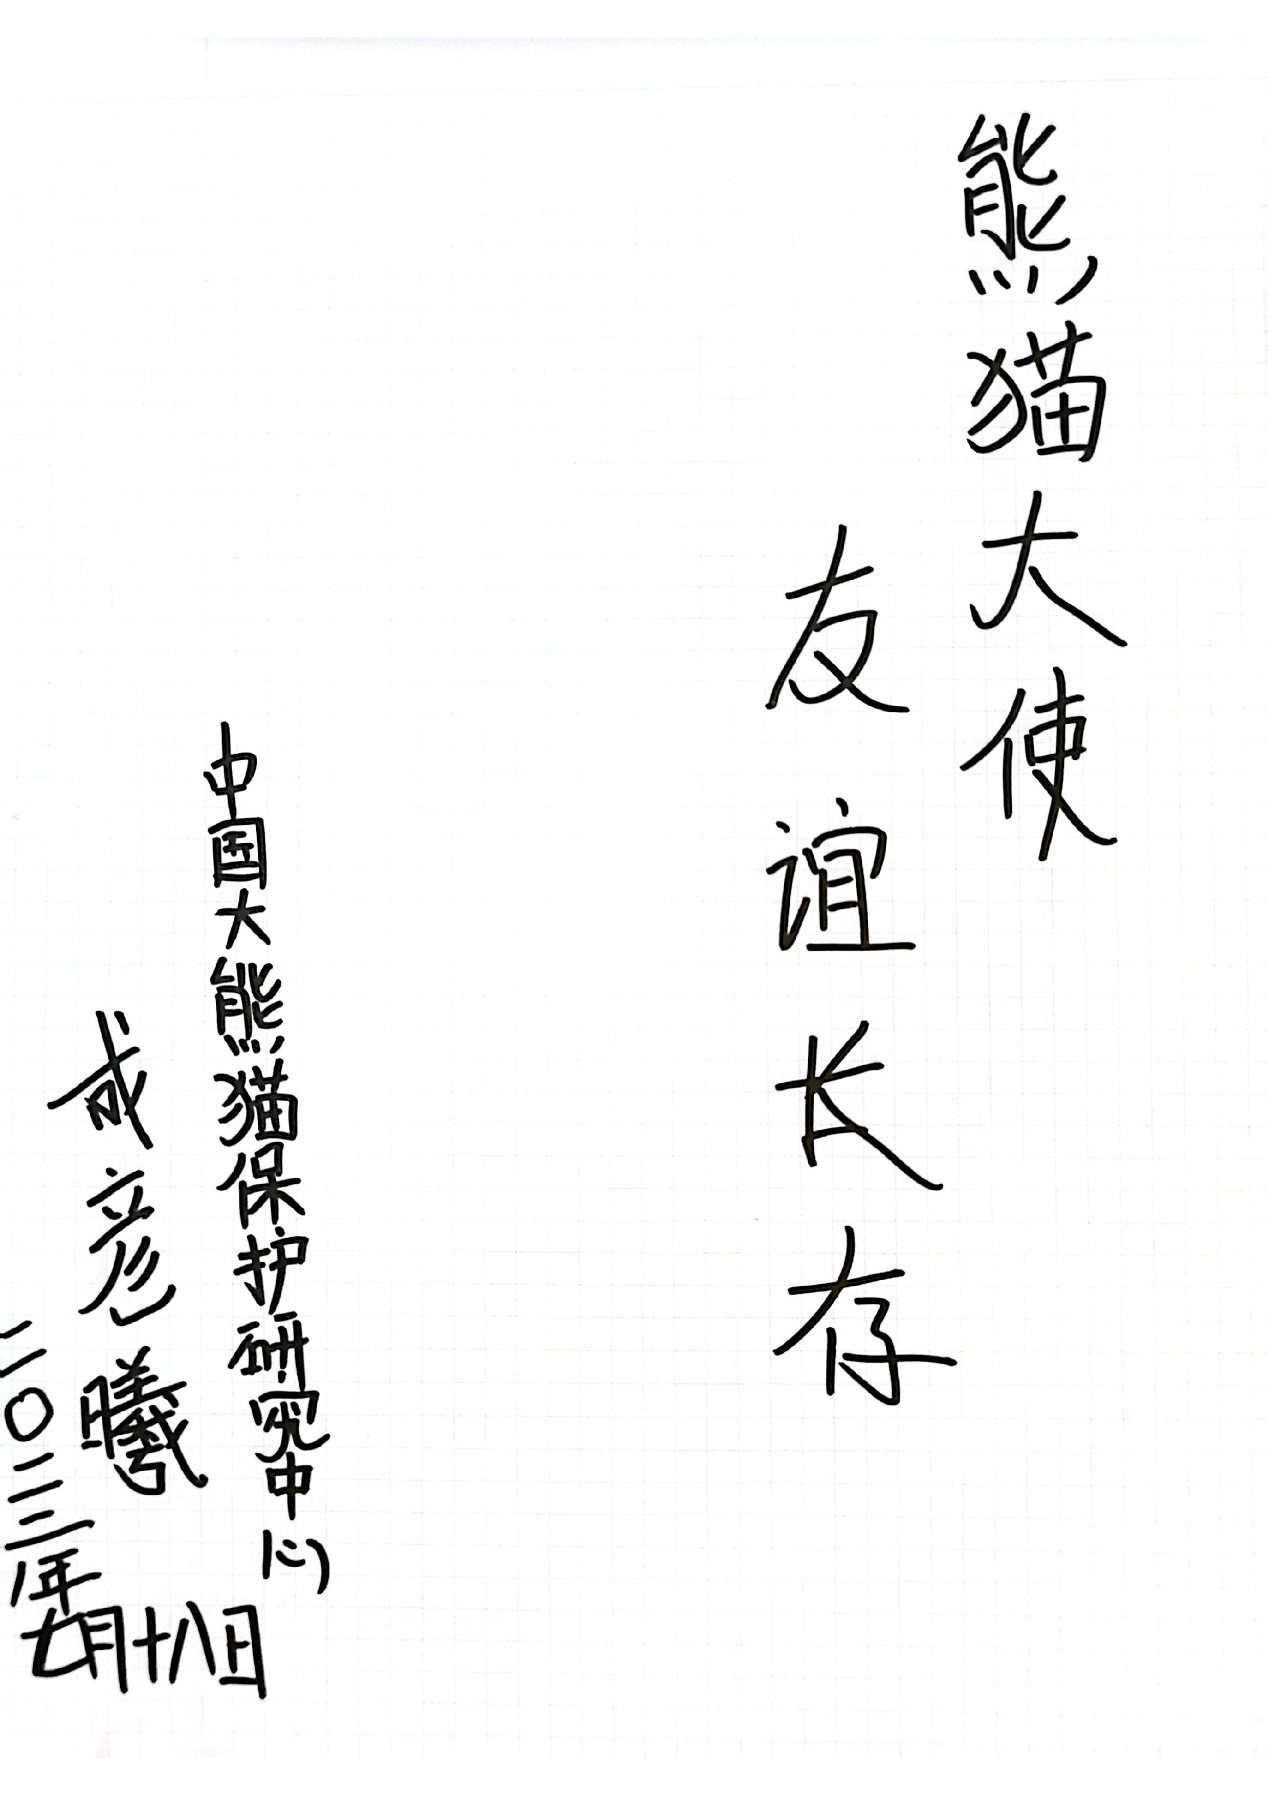 熊猫大使
友谊长存
中国大熊猫保护研究中心
成彦曦
二〇二三年
七月十八日